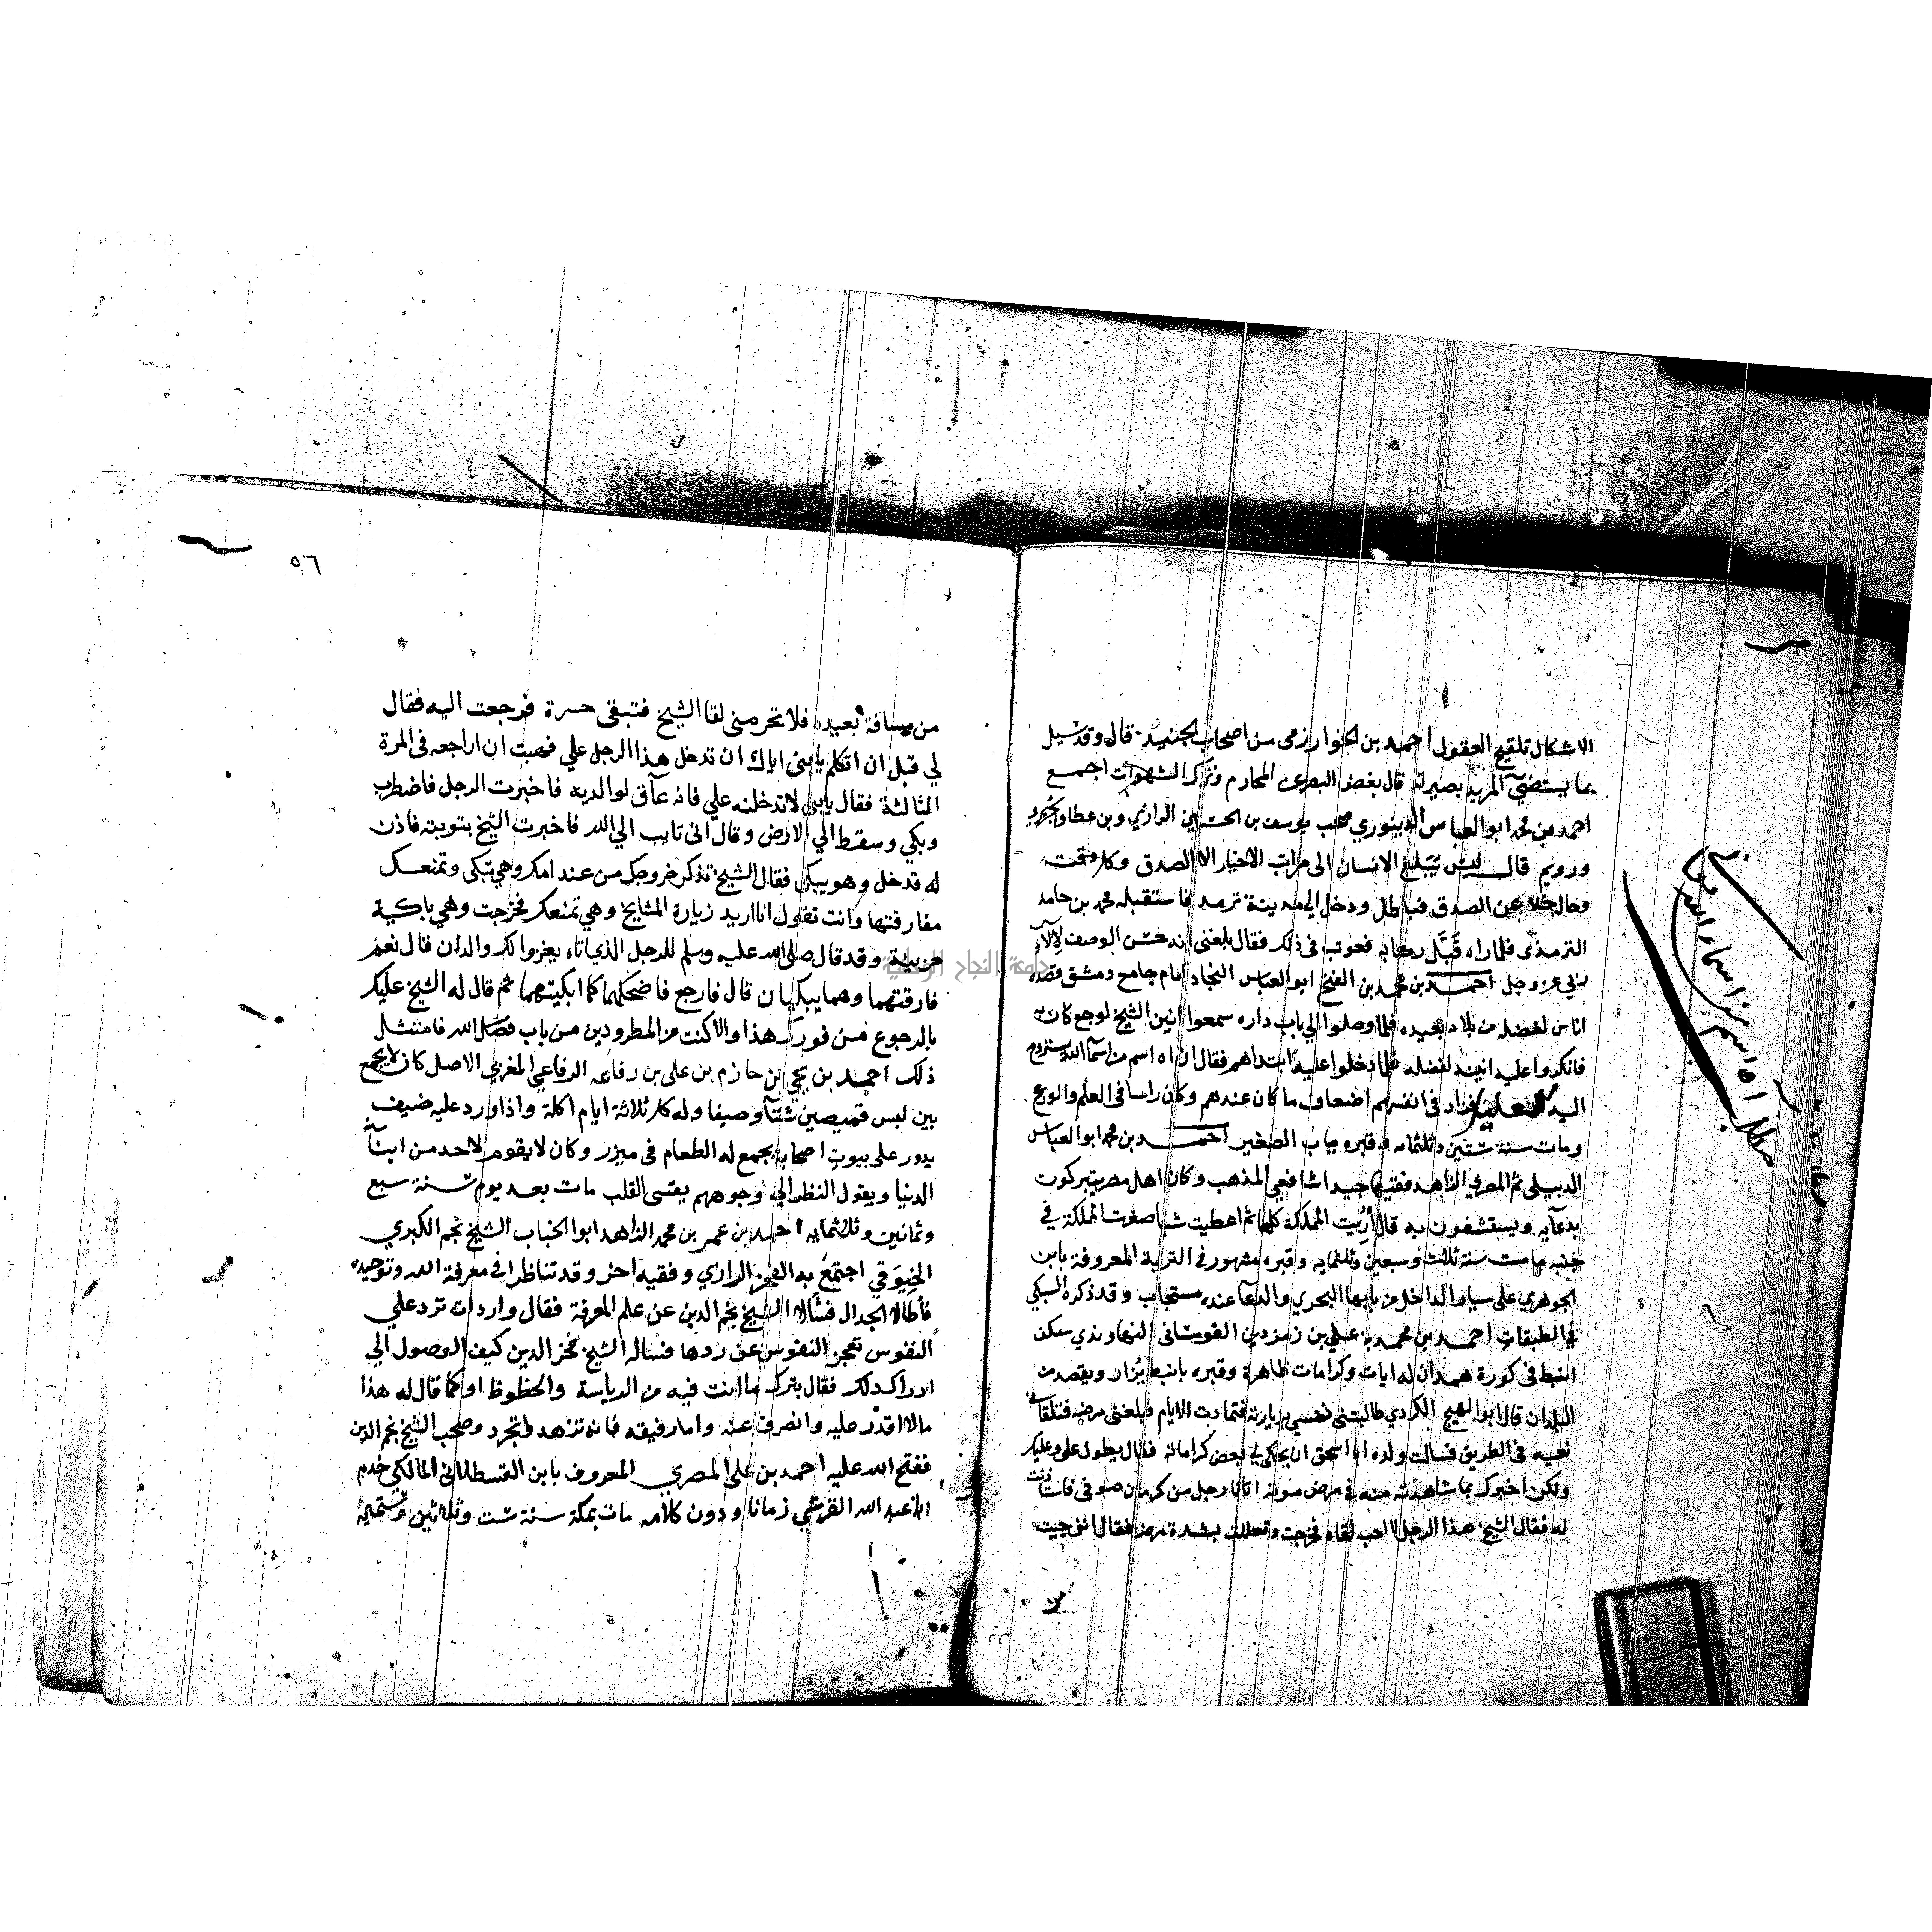 الاشكال تلقيح العقول احمد بن الخوارزمى من اصحاب الجنيد قال وقد سئل
بما يستضئ المريد بصيرته قال بغض البصر عن المحارم وترك الشهوات اجمع
احمد بن محمد ابو العباس الدينوري صحب يوسف بن الحسين الرازي وبن عطا والجريري
ورويم قال ليس يبلغ الانسان الى مراتب الاخيار الا الصدق وكل وقت
وحال خلا عن الصدق فباطل ودخل الي مدينة ترمد فاستقبله محمد بن حامد
الترمذى فلما راه قبّل ركابه فعوتب فى ذلك فقال بلغنى انه حسن الوصف لآلاء
ربي عز وجل احمد بن محمد بن الفتح ابو العباس النجاد امام جامع دمشق قصده
اناس لفضله من بلاد بعيده فلما وصلوا الي باب داره سمعوا انين الشيخ لوجع كان به
فانكروا عليه انينه لفضله فلما دخلوا عليه ابتداهم فقال ان اه اسم من اسما الله يستروح
اليه فزاد فى انفسهم اضعاف ما كان عندهم وكان راسا فى العلم والورع
ومات سنة ستين وثلثمايه وقبره بباب الصغير احمد بن محمد ابو العباس
الدبيلى ثم المصري الزاهد فقيها جيدا شافعي المذهب وكان اهل مصر يتبركون
بدعآيه ويستشفون به قال أريت المملكة كلها ثم اعطيت شيا صغت المملكة في
جنبه مات سنة ثلاث وسبعين وثلثمايه وقبره مشهور في التربة المعروفة بابن
الجوهري على سيار الداخل من بابها البحري والدعآ عنده مستجاب وقد ذكره السبكي
في الطبقات احمد بن محمد بن علي بن زمزدين القومشانى النهاوندي سكن
انبط فى كورة همدان له ايات وكرامات ظاهرة وقبره بانبط يُزار ويقصد من
البلدان قال ابو الهيج الكردي طالبتنى نفسي بزيارته فتمادت الايام فبلغنى مرضه فتلقانى
نعيه فى الطريق فسالت ولده ابا اسحق ان يحكى لي بعض كراماته فقال يطول على وعليك
ولكن اخبرك بما شاهدته منه في مرض موته اتانا رجل من كرمان صوفى فاستاذنت
له فقال الشيخ هذا الرجل لا احب لقاه فخرجت وتعللت بشدة مرضه فقال انى جيت
مطلب آه اسم من اسماء الله تعالى
٥٦
من مسافة بعيده فلا تحرمنى لقا الشيخ فتبقى حسرة فرجعت اليه فقال
لي قبل ان اتكلم يا بنى اياك ان تدخل هذا الرجل علي فهبت ان اراجعه فى المرة
الثالثة فقال يا بنى لا تدخلنه علي فانه عآق لوالديه فاخبرت الرجل فاضطرب
وبكي وسقط الي الارض وقال انى تايب الي الله فاخبرت الشيخ بتوبته فاذن
له فدخل وهو يبكى فقال الشيخ تذكر خروجك من عند امك وهي تبكى وتمنعك
مفارقتها وانت تقول انا اريد زيارة المشايخ وهي تمنعك فخرجت وهي باكية
حزينة وقد قال صلى الله عليه وسلم للرجل الذي اتاه بغزو الك والدان قال نعم
فارقتهما وهما يبكيان قال فارجع فاضحكهما كما ابكيتهما ثم قال له الشيخ عليك
بالرجوع من فورك هذا والا كنت من المطرودين من باب فضل الله فامتثل
ذلك احمد بن يحي بن حازم بن على بن رفاعه الرفاعي المغربي الاصل كان لا يجمع
بين لبس قميصين شتآ وصيفا وله كل ثلاثة ايام اكلة واذا ورد عليه ضيف
يدور على بيوت اصحابه يجمع له الطعام فى ميزر وكان لا يقوم لاحد من ابنآء
الدنيا ويقول النظر الي وجوههم يقسى القلب مات بعد يوم سنة سبع
وثمانين وثلاثمايه احمد بن عمر بن محمد الزاهد ابو الخباب الشيخ نجم الكبري
الخِيوَقي اجتمع به الفخر الرازي وفقيه اخر وقد تناظرا في معرفة الله وتوحيده
فأطالا الجدال فسَالا الشيخ نجم الدين عن علم المعرفة فقال واردات ترد علي
النفوس تعجز النفوس عن ردها فساله الشيخ فخر الدين كيف الوصول الي
ادراك ذلك فقال بترك ما انت فيه من الرياسة والحظوظ او كما قال له هذا
مالا اقدر عليه وانصرف عنه واما رفيقه فانه تزهد وتجرد وصحب الشيخ نجم الدين
ففتح الله عليه احمد بن على المصري المعروف بابن القسطلانى المالكي خدم
ابا عبد الله القرشي زمانا ودون كلامه مات بمكة سنة ست وثلاثين وستمايه
جامعة النجاح الوطنية